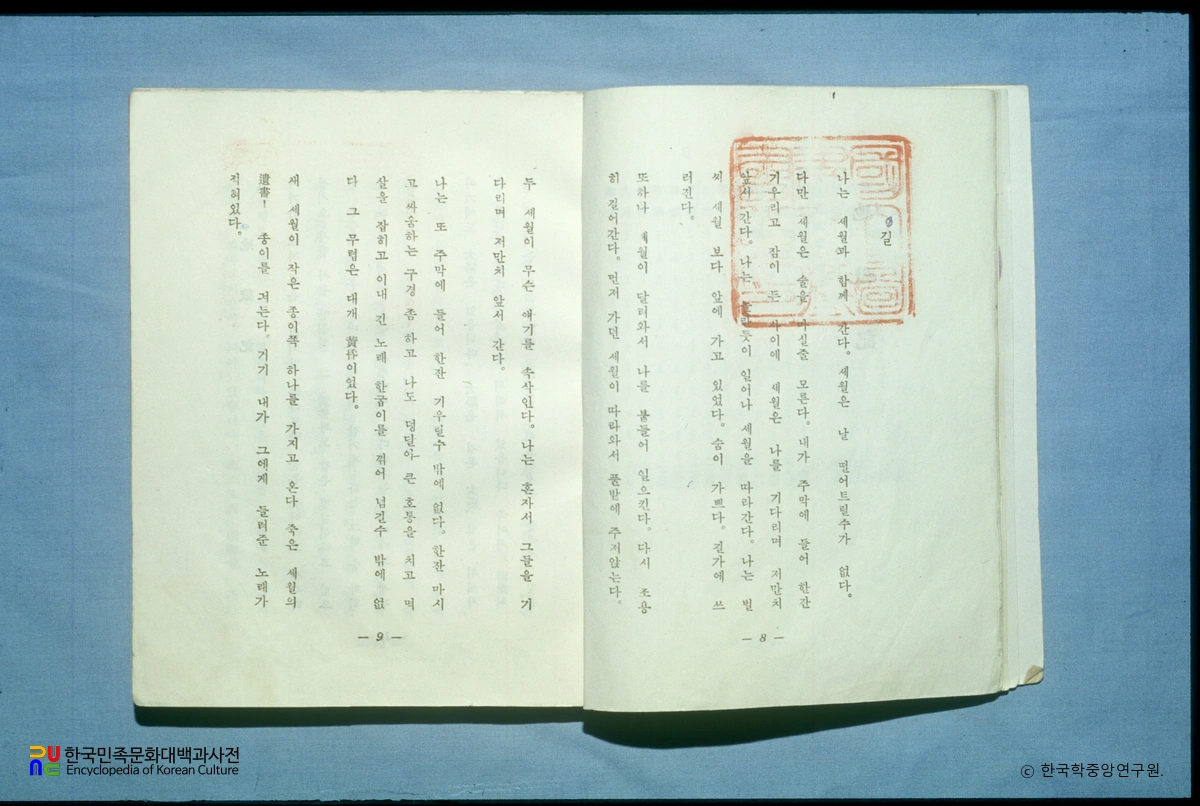 길
나는 세월과 함께 간다. 세월은 날 떨어트릴수가 없다.
다만 세월은 술을 마실줄 모른다. 내가 주막에 들어 한잔
기우리고 잠이 든 사이에 세월은 나를 기다리며 저만치
앞서 간다. 나는 놀란듯이 일어나 세월을 따라간다. 나는 벌
써 세월 보다 앞에 가고 있었다. 숨이 가쁘다. 길가에 쓰
러진다.
또하나 세월이 달려와서 나를 붙들어 일으킨다. 다시 조용
히 걸어간다. 먼저 가던 세월이 따라와서 풀밭에 주저앉는다.
— 8 —
두 세월이 무슨 얘기를 속삭인다. 나는 혼자서 그들을 기
다리며 저만치 앞서 간다.
나는 또 주막에 들어 한잔 기우릴수 밖에 없다. 한잔 마시
고 싸움하는 구경 좀 하고 나도 덩달아 큰 호통을 치고 멱
살을 잡히고 이내 긴 노래 한굽이를 꺾어 넘길수 밖에 없
다 그 무렵은 대개 黃昏이었다.
새 세월이 작은 종이쪽 하나를 가지고 온다 죽은 세월의
遺書! 종이를 펴든다. 거기 내가 그에게 들려준 노래가
적혀있다.
— 9 —
한국민족문화대백과사전
Encyclopedia of Korean Culture
© 한국학중앙연구원.